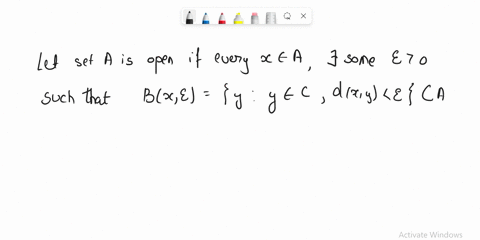 Let set A is open if every x ∈ A, ∃ some ε > 0
such that B(x,ε) = { y : y ∈ C, d(x,y) < ε { ⊂ A
Activate Windows